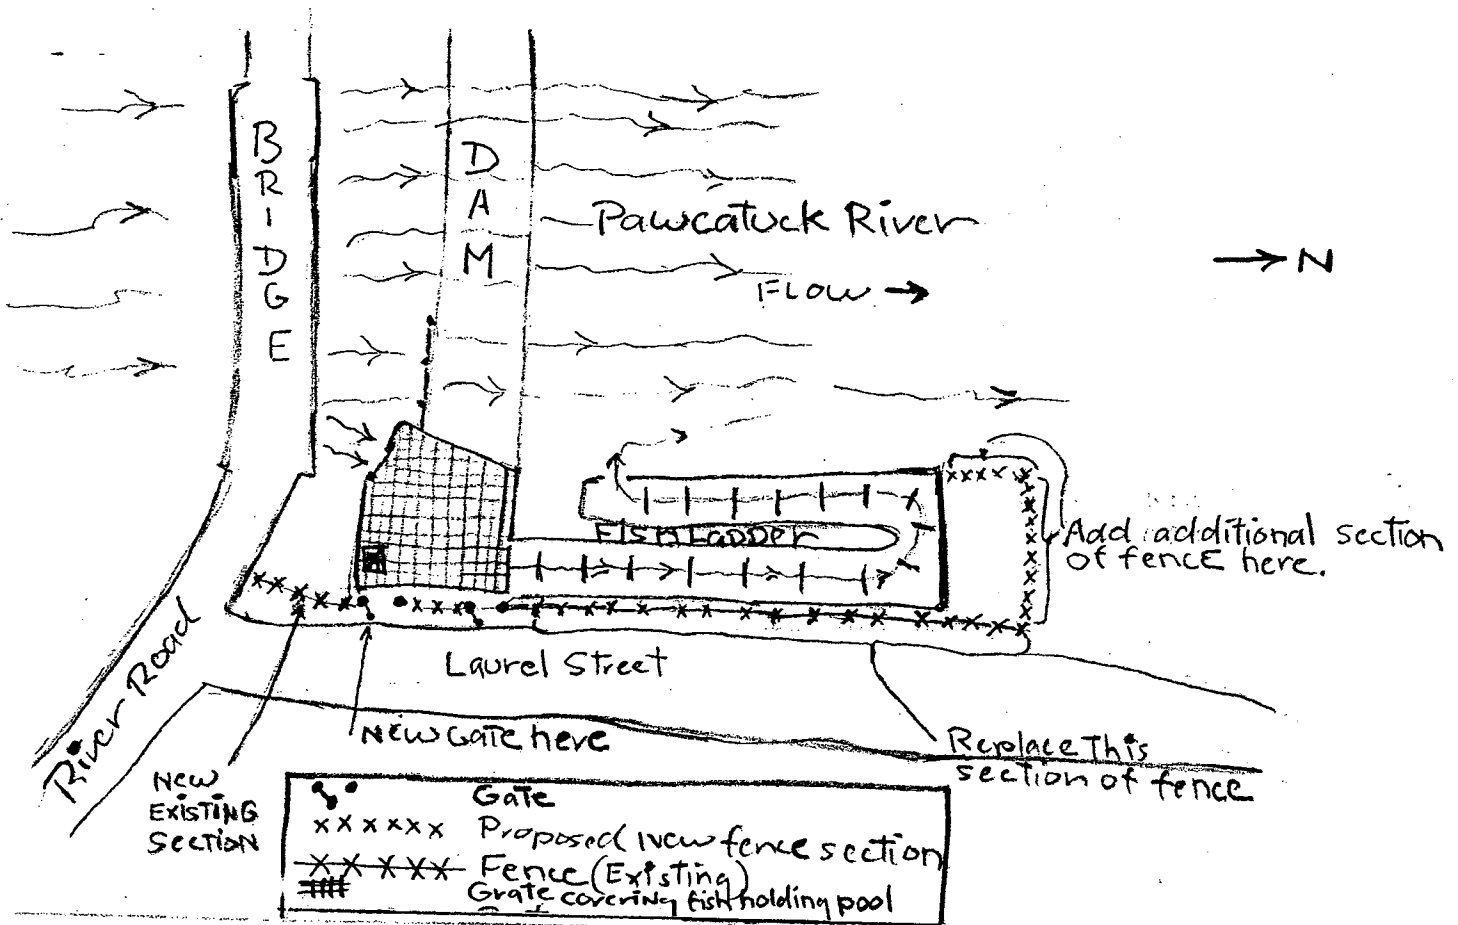 BRIDGE
DAM
Pawcatuck River
FLOW
N
Fish Ladder
Add additional section
of fence here.
Laurel Street
River Road
New Gate here
Replace This
section of fence
New
Existing
Section
Gate
Proposed New fence section
Fence (Existing)
Grate covering fish holding pool